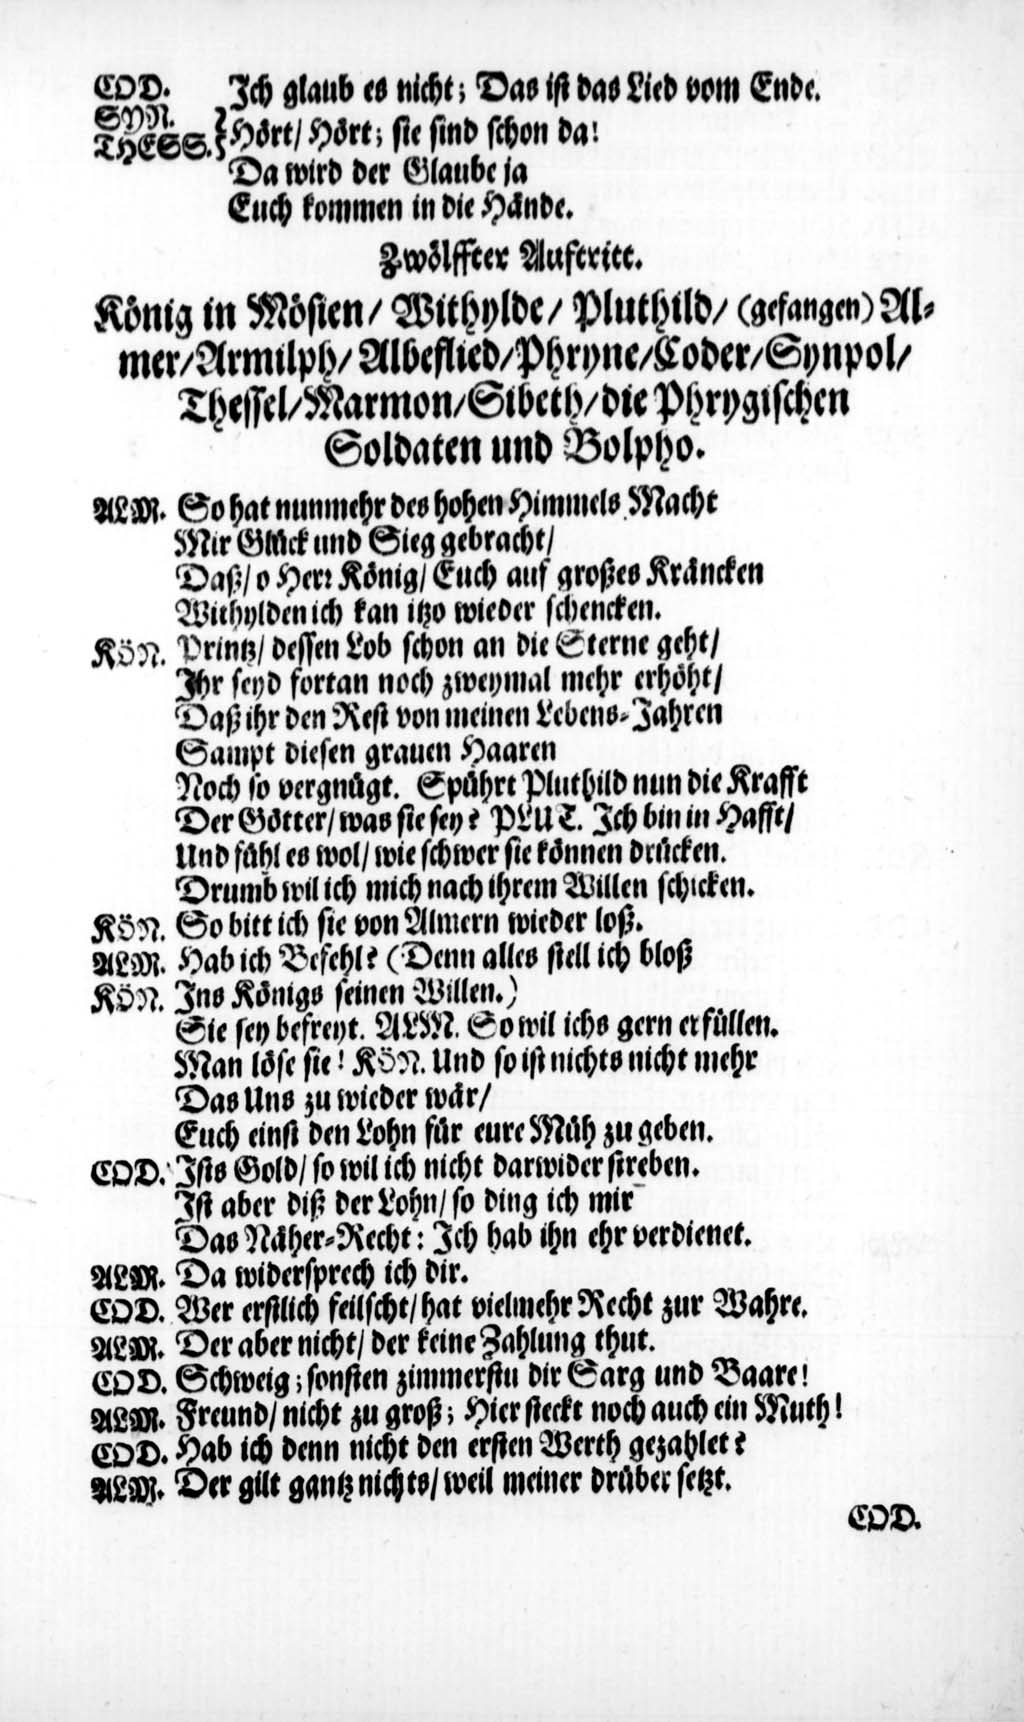 COD. Ich glaub es nicht; Das ist das Lied vom Ende.
SYN.
THESS. } Hört/ Hört; sie sind schon da!
Da wird der Glaube ja
Euch kommen in die Hände.
Zwölffter Auftritt.
König in Mösien/ Withylde/ Pluthild/ (gefangen) Al-
mer/Armilph/ Albeflied/Phryne/Coder/Synpol/
Thessel/Marmon/Sibeth/die Phrygischen
Soldaten und Bolpho.
ALM. So hat nunmehr des hohen Himmels Macht
Mir Glück und Sieg gebracht/
Daß/ o Herr König/ Euch auf großes Kräncken
Withylden ich kan itzo wieder schencken.
KÖN. Printz/ dessen Lob schon an die Sterne geht/
Ihr seyd fortan noch zweymal mehr erhöht/
Daß ihr den Rest von meinen Lebens-Jahren
Sampt diesen grauen Haaren
Noch so vergnügt. Spührt Pluthild nun die Krafft
Der Götter/ was sie sey? PLUT. Ich bin in Hafft/
Und fühl es wol/ wie schwer sie können drücken.
Drumb wil ich mich nach ihrem Willen schicken.
KÖN. So bitt ich sie von Almern wieder loß.
ALM. Hab ich Befehl? (Denn alles stell ich bloß
KÖN. Ins Königs seinen Willen.)
Sie sey befreyt. ALM. So wil ichs gern erfüllen.
Man löse sie! KÖN. Und so ist nichts nicht mehr
Das Uns zu wieder wär/
Euch einst den Lohn für eure Müh zu geben.
COD. Ists Gold/ so wil ich nicht darwider streben.
Ist aber diß der Lohn/ so ding ich mir
Das Näher-Recht: Ich hab ihn ehr verdienet.
ALM. Da widersprech ich dir.
COD. Wer erstlich feilscht/ hat vielmehr Recht zur Wahre.
ALM. Der aber nicht/ der keine Zahlung thut.
COD. Schweig; sonsten zimmerstu dir Sarg und Baare!
ALM. Freund/ nicht zu groß; Hier steckt noch auch ein Muth!
COD. Hab ich denn nicht den ersten Werth gezahlet?
ALM. Der gilt gantz nichts/ weil meiner drüber setzt.
COD.